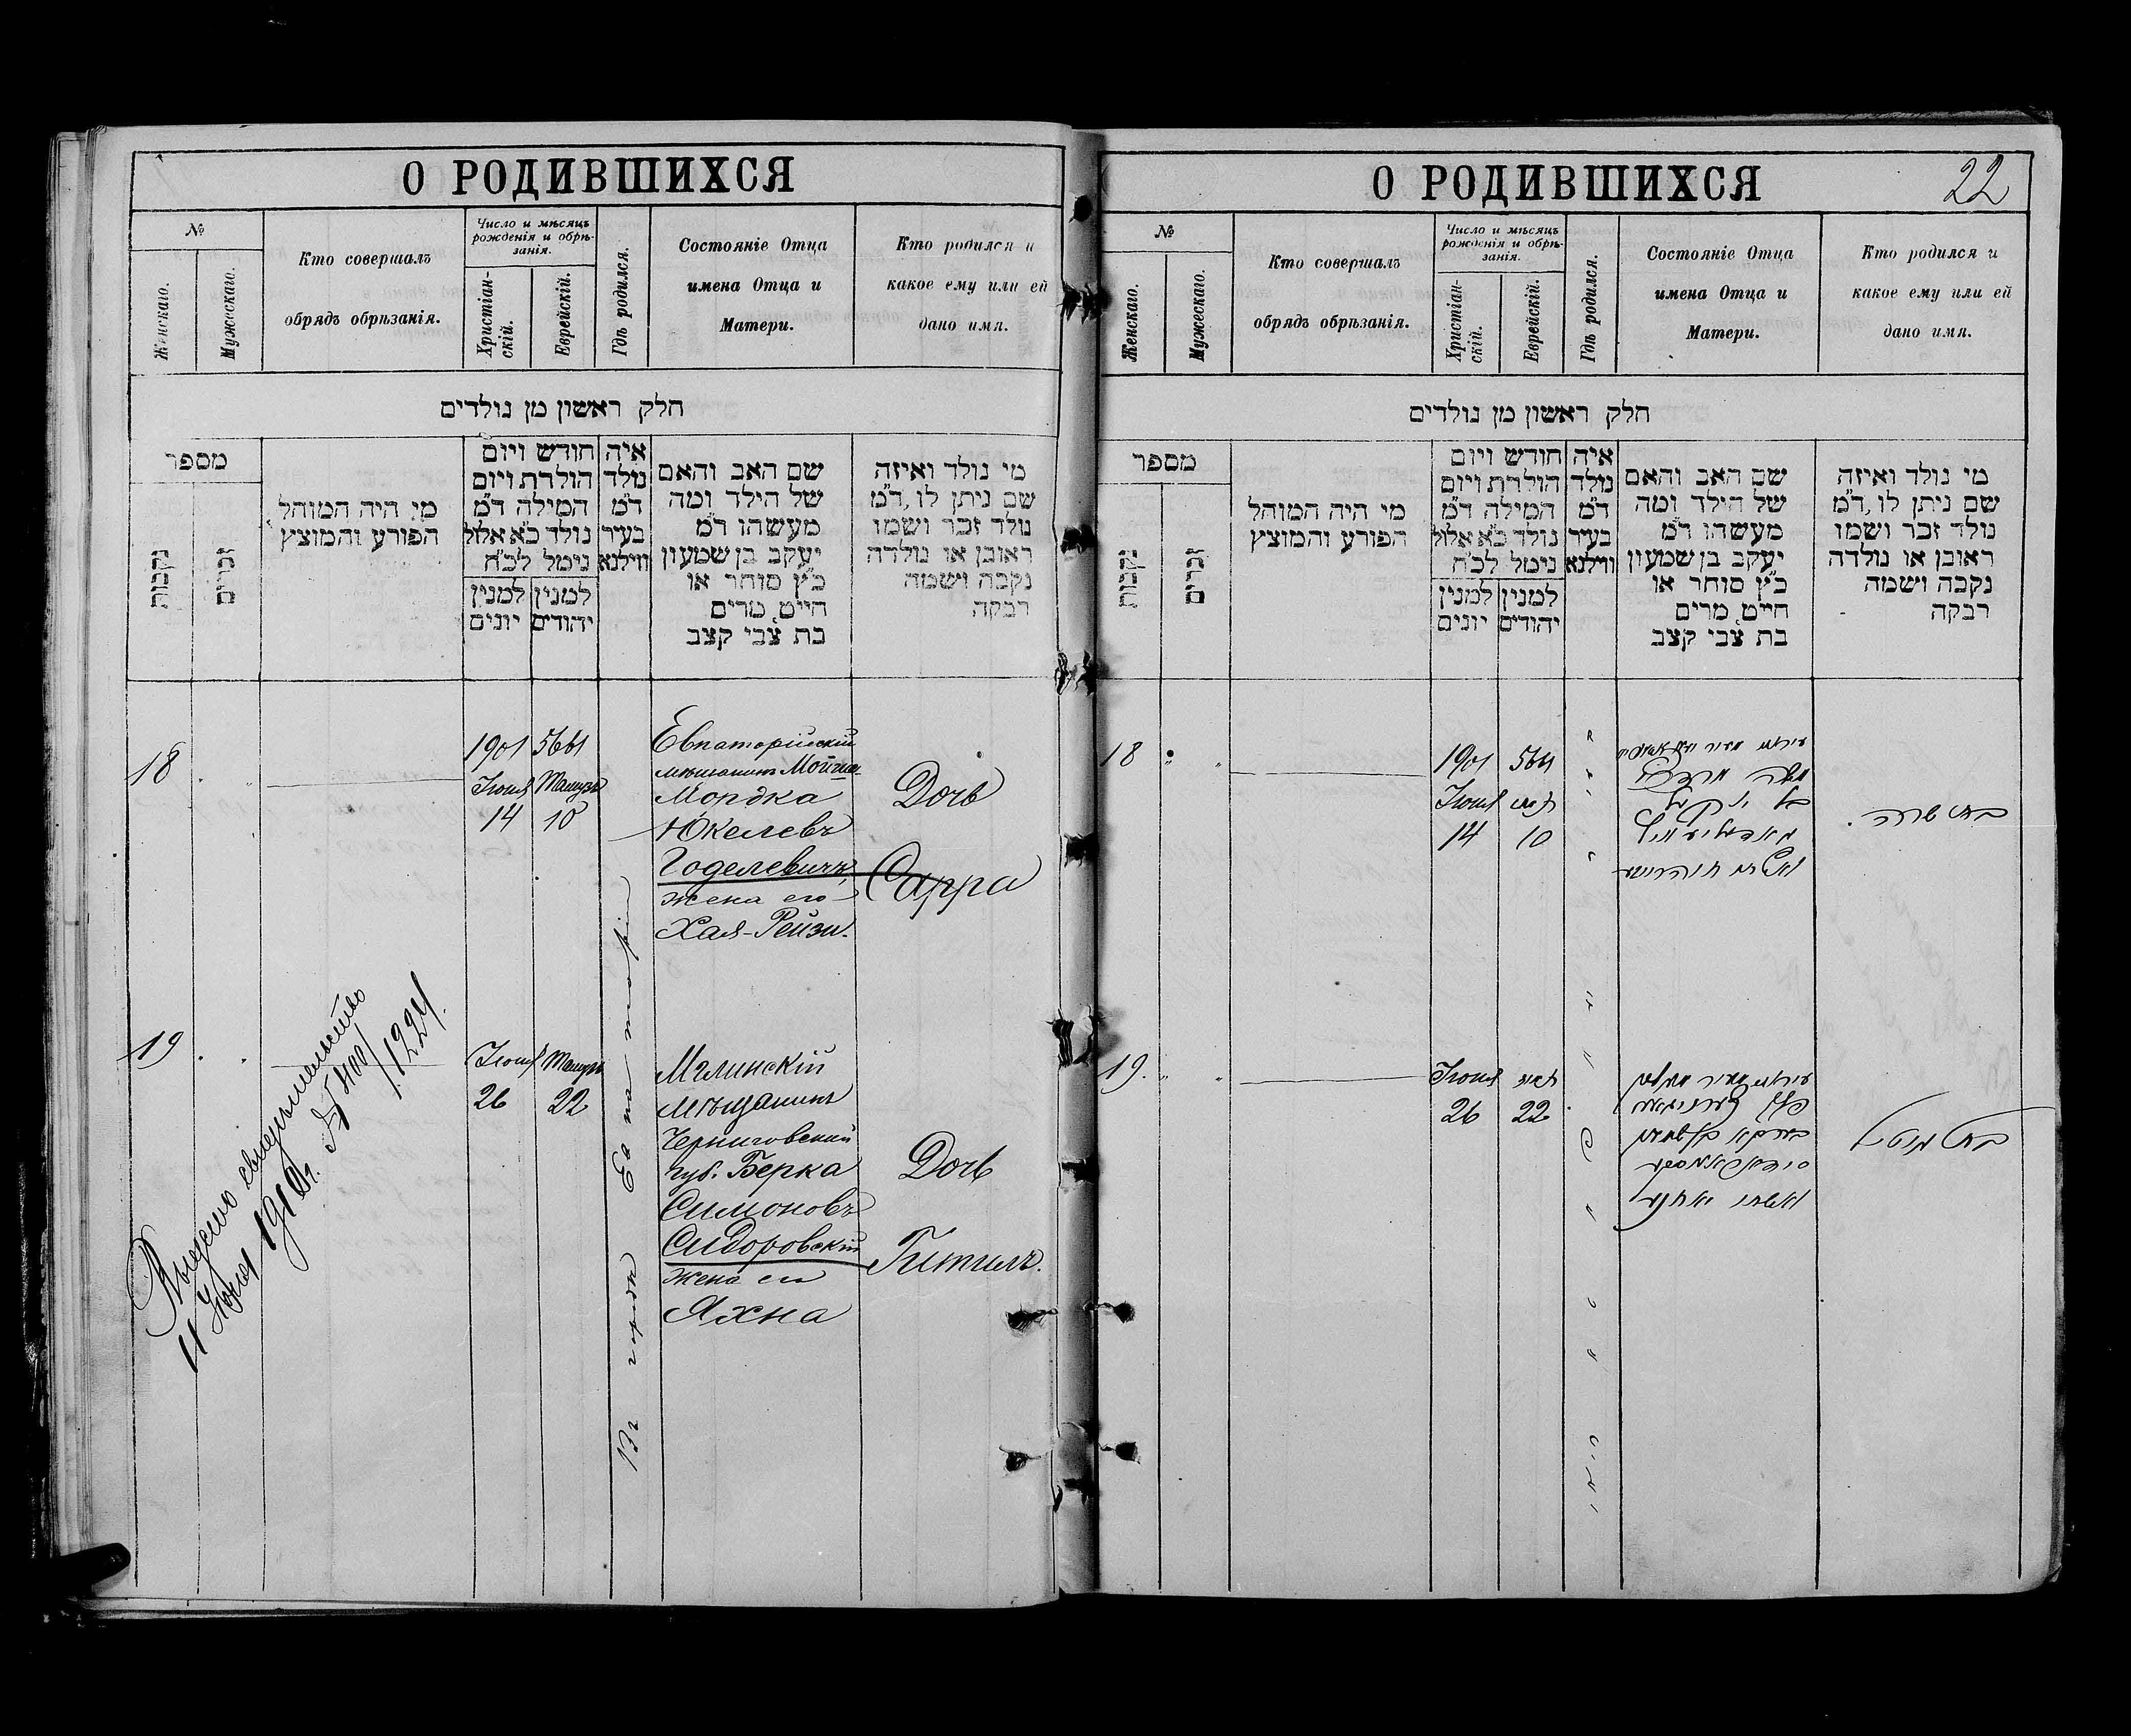 О РОДИВШИХСЯ
№
Женскаго.
Мужескаго.
Кто совершалъ
обрядъ обрѣзанія.
Число и мѣсяцъ
рожденія и обрѣ-
занія.
Христіан-
скій.
Еврейскій.
Гдѣ родился.
Состояніе Отца
имена Отца и
Матери.
Кто родился и
какое ему или ей
дано имя.
חלק ראשון מן נולדים
מספר
נקבות
זכרים
מי היה המוהל
הפורע והמוצץ
חודש ויום
הולדת ויום
המילה ד״מ
נולד כ״א אלול
נימל לכ״ח
למנין
יהודים
למנין
יונים
איה
נולד
ד״מ
בעיר
ווילנא
שם האב והאם
של הילד ומה
מעשהו ד״מ
יעקב בן שמעון
כ״ץ סוחר או
חייט, מרים
בת צבי קצב
מי נולד ואיזה
שם ניתן לו, ד״מ
נולד זכר ושמו
ראובן או נולדה
נקבה וישמה
רבקה
18
1901 5661
Іюня Тамузъ
14 10
Евпаторійскій
мѣщанинъ Мойше-
Мордка
Юкелевъ
Годелевичъ,
жена его
Хая-Рейзи.
Дочь
Сарра
19
Іюня Тамузъ
26 22
Мглинскій
мѣщанинъ
Черниговской
губ. Берка
Симоновъ
Сидоровскій
жена его
Яхна
Дочь
Гитиль.
Въ городѣ Евпаторіи
Выдано свидѣтельство
11 Іюня 1910 г. № 400/1224.
О РОДИВШИХСЯ
22
№
Женскаго.
Мужескаго.
Кто совершалъ
обрядъ обрѣзанія.
Число и мѣсяцъ
рожденія и обрѣ-
занія.
Христіан-
скій.
Еврейскій.
Гдѣ родился.
Состояніе Отца
имена Отца и
Матери.
Кто родился и
какое ему или ей
дано имя.
חלק ראשון מן נולדים
מספר
נקבות
זכרים
מי היה המוהל
הפורע והמוצץ
חודש ויום
הולדת ויום
המילה ד״מ
נולד כ״א אלול
נימל לכ״ח
למנין
יהודים
למנין
יונים
איה
נולד
ד״מ
בעיר
ווילנא
שם האב והאם
של הילד ומה
מעשהו ד״מ
יעקב בן שמעון
כ״ץ סוחר או
חייט, מרים
בת צבי קצב
מי נולד ואיזה
שם ניתן לו, ד״מ
נולד זכר ושמו
ראובן או נולדה
נקבה וישמה
רבקה
18
1901 5661
Іюня תמוז
14 10
משה מרדכי
בת שרה.
19.
Іюня תמוז
26 22
בת גיטל